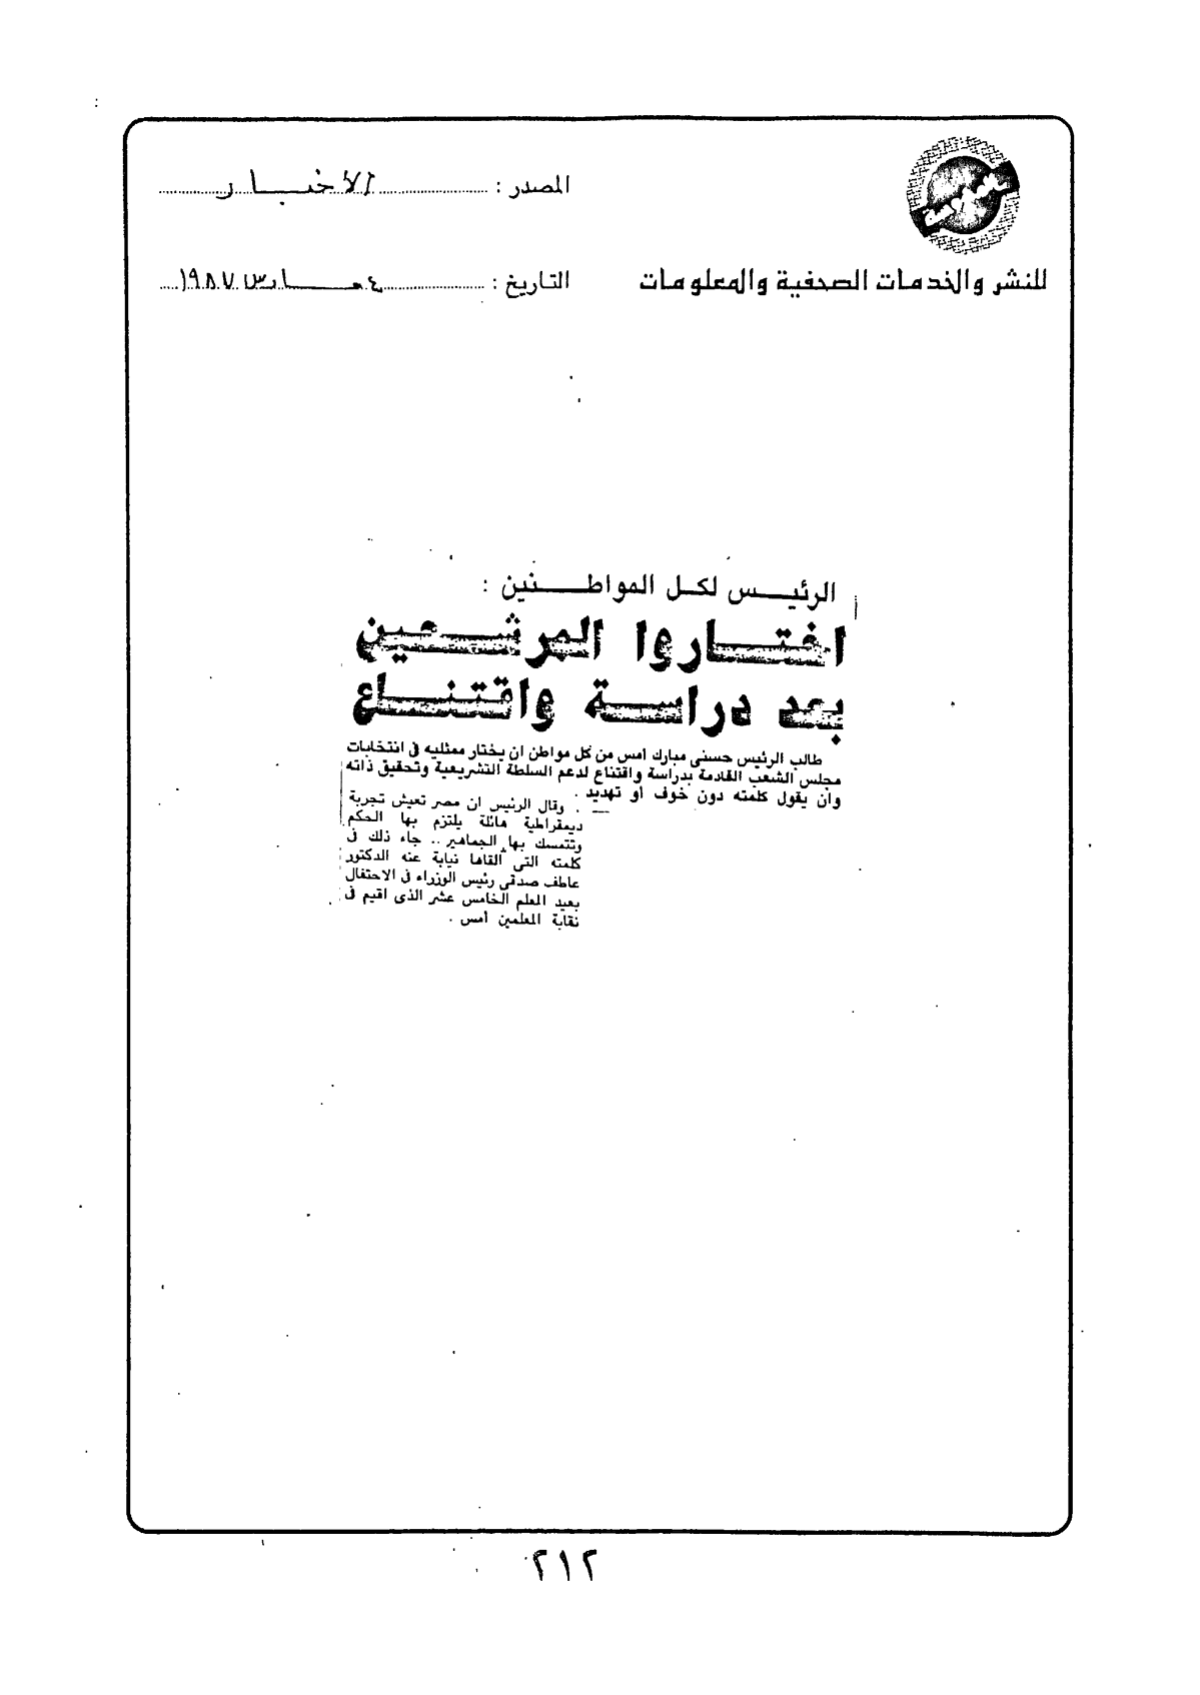 المصدر : الأخبار
للنشر والخدمات الصحفية والمعلومات
التاريخ : ٤ مارس ١٩٨٧
الرئيس لكل المواطنين :
اختاروا المرشحين
بعد دراسة واقتناع
طالب الرئيس حسنى مبارك أمس من كل مواطن ان يختار ممثليه فى انتخابات
مجلس الشعب القادمة بدراسة واقتناع لدعم السلطة التشريعية وتحقيق ذاته
وان يقول كلمته دون خوف او تهديد .
وقال الرئيس ان مصر تعيش تجربة
ديمقراطية هائلة يلتزم بها الحكم
وتتمسك بها الجماهير .. جاء ذلك فى
كلمته التى القاها نيابة عنه الدكتور
عاطف صدقى رئيس الوزراء فى الاحتفال
بعيد المعلم الخامس عشر الذى اقيم فى
نقابة المعلمين أمس .
٢١٢